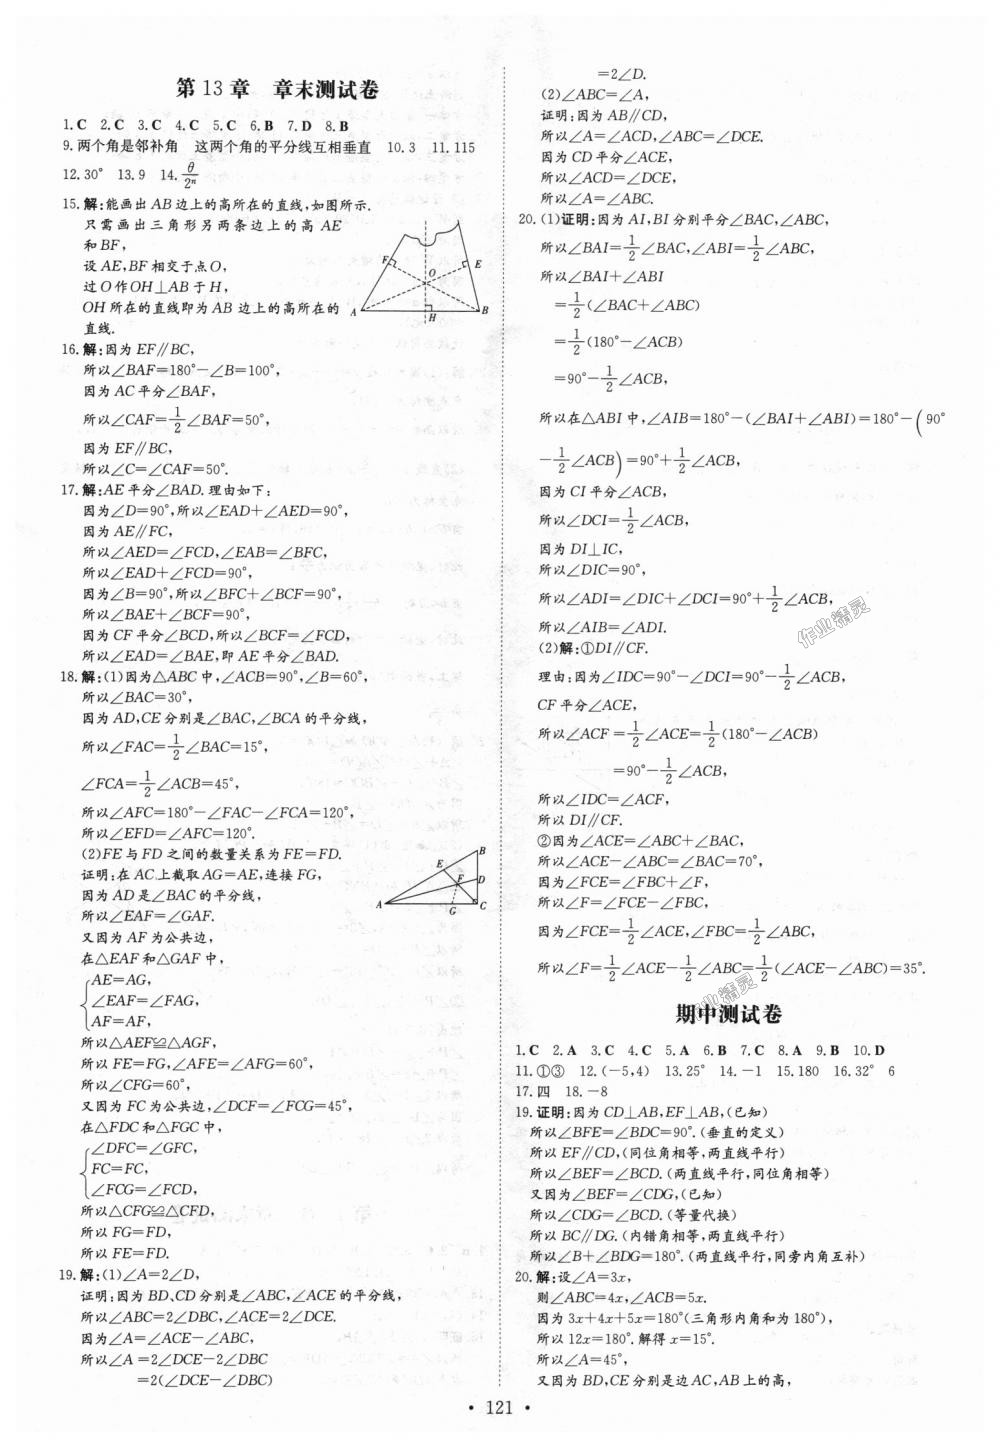 第13章　章末测试卷
1.C　2.C　3.C　4.C　5.C　6.B　7.D　8.B
9.两个角是邻补角　这两个角的平分线互相垂直　10.3　11.115
12.30°　13.9　14.θ/2ⁿ
15.解:能画出AB边上的高所在的直线,如图所示.
只需画出三角形另两条边上的高AE
和BF,
设AE,BF相交于点O,
过O作OH⊥AB于H,
OH所在的直线即为AB边上的高所在的
直线.
F E O A H B
16.解:因为EF∥BC,
所以∠BAF=180°-∠B=100°,
因为AC平分∠BAF,
所以∠CAF=1/2∠BAF=50°,
因为EF∥BC,
所以∠C=∠CAF=50°.
17.解:AE平分∠BAD.理由如下:
因为∠D=90°,所以∠EAD+∠AED=90°,
因为AE∥FC,
所以∠AED=∠FCD,∠EAB=∠BFC,
所以∠EAD+∠FCD=90°,
因为∠B=90°,所以∠BFC+∠BCF=90°,
所以∠BAE+∠BCF=90°,
因为CF平分∠BCD,所以∠BCF=∠FCD,
所以∠EAD=∠BAE,即AE平分∠BAD.
18.解:(1)因为△ABC中,∠ACB=90°,∠B=60°,
所以∠BAC=30°,
因为AD,CE分别是∠BAC,∠BCA的平分线,
所以∠FAC=1/2∠BAC=15°,
∠FCA=1/2∠ACB=45°,
所以∠AFC=180°-∠FAC-∠FCA=120°,
所以∠EFD=∠AFC=120°.
(2)FE与FD之间的数量关系为FE=FD.
证明:在AC上截取AG=AE,连接FG,
因为AD是∠BAC的平分线,
所以∠EAF=∠GAF.
又因为AF为公共边,
在△EAF和△GAF中,
B E F D A G C
AE=AG,
∠EAF=∠FAG,
AF=AF,
所以△AEF≌△AGF,
所以FE=FG,∠AFE=∠AFG=60°,
所以∠CFG=60°,
又因为FC为公共边,∠DCF=∠FCG=45°,
在△FDC和△FGC中,
∠DFC=∠GFC,
FC=FC,
∠FCG=∠FCD,
所以△CFG≌△CFD,
所以FG=FD,
所以FE=FD.
19.解:(1)∠A=2∠D,
证明:因为BD、CD分别是∠ABC,∠ACE的平分线,
所以∠ABC=2∠DBC,∠ACE=2∠DCE.
因为∠A=∠ACE-∠ABC,
所以∠A=2∠DCE-2∠DBC
=2(∠DCE-∠DBC)
=2∠D.
(2)∠ABC=∠A,
证明:因为AB∥CD,
所以∠A=∠ACD,∠ABC=∠DCE.
因为CD平分∠ACE,
所以∠ACD=∠DCE,
所以∠A=∠ABC.
20.(1)证明:因为AI,BI分别平分∠BAC,∠ABC,
所以∠BAI=1/2∠BAC,∠ABI=1/2∠ABC,
所以∠BAI+∠ABI
=1/2(∠BAC+∠ABC)
=1/2(180°-∠ACB)
=90°-1/2∠ACB,
所以在△ABI中,∠AIB=180°-(∠BAI+∠ABI)=180°-(90°
-1/2∠ACB)=90°+1/2∠ACB,
因为CI平分∠ACB,
所以∠DCI=1/2∠ACB,
因为DI⊥IC,
所以∠DIC=90°,
所以∠ADI=∠DIC+∠DCI=90°+1/2∠ACB,
所以∠AIB=∠ADI.
(2)解:①DI∥CF.
理由:因为∠IDC=90°-∠DCI=90°-1/2∠ACB,
CF平分∠ACE,
所以∠ACF=1/2∠ACE=1/2(180°-∠ACB)
=90°-1/2∠ACB,
所以∠IDC=∠ACF,
所以DI∥CF.
②因为∠ACE=∠ABC+∠BAC,
所以∠ACE-∠ABC=∠BAC=70°,
因为∠FCE=∠FBC+∠F,
所以∠F=∠FCE-∠FBC,
因为∠FCE=1/2∠ACE,∠FBC=1/2∠ABC,
所以∠F=1/2∠ACE-1/2∠ABC=1/2(∠ACE-∠ABC)=35°.
作业精灵
作业精灵
期中测试卷
1.C　2.A　3.C　4.C　5.A　6.B　7.C　8.A　9.B　10.D
11.①③　12.(-5,4)　13.25°　14.-1　15.180　16.32°　6
17.四　18.-8
19.证明:因为CD⊥AB,EF⊥AB,(已知)
所以∠BFE=∠BDC=90°.(垂直的定义)
所以EF∥CD,(同位角相等,两直线平行)
所以∠BEF=∠BCD.(两直线平行,同位角相等)
又因为∠BEF=∠CDG,(已知)
所以∠CDG=∠BCD.(等量代换)
所以BC∥DG.(内错角相等,两直线平行)
所以∠B+∠BDG=180°.(两直线平行,同旁内角互补)
20.解:设∠A=3x,
则∠ABC=4x,∠ACB=5x.
因为3x+4x+5x=180°(三角形内角和为180°),
所以12x=180°.解得x=15°.
所以∠A=45°,
又因为BD,CE分别是边AC,AB上的高,
• 121 •